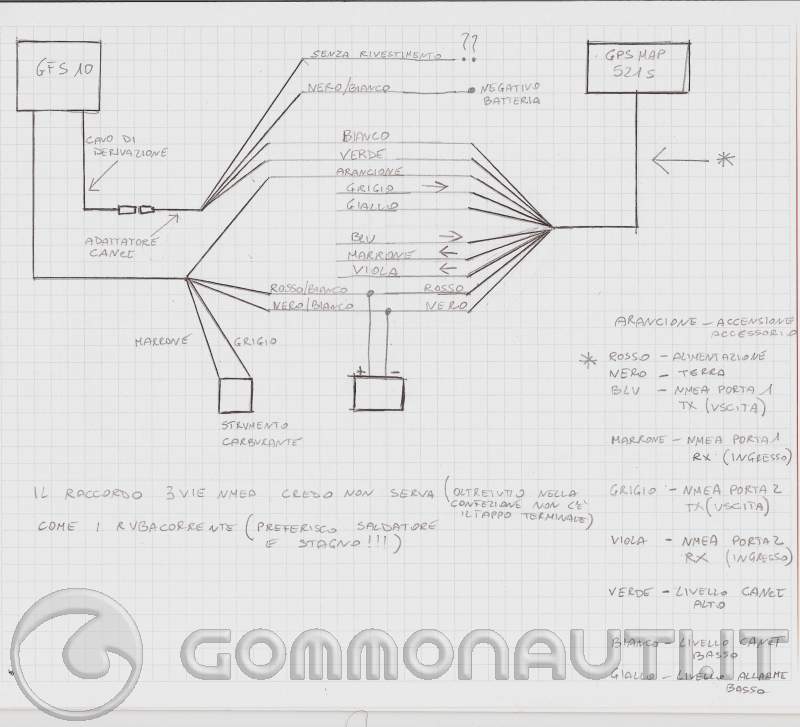 GFS 10
SENZA RIVESTIMENTO ??
NERO/BIANCO
NEGATIVO
BATTERIA
GPS MAP
521s
CAVO DI
DERIVAZIONE
BIANCO
VERDE
ARANCIONE
GRIGIO
GIALLO
ADATTATORE
CANET
BLU
MARRONE
VIOLA
ROSSO/BIANCO ROSSO
NERO/BIANCO NERO
MARRONE GRIGIO
+ -
STRUMENTO
CARBURANTE
ARANCIONE - ACCENSIONE
ACCESSORIO
* ROSSO - ALIMENTAZIONE
NERO - TERRA
BLU - NMEA PORTA 1
TX (USCITA)
MARRONE - NMEA PORTA 1
RX (INGRESSO)
GRIGIO - NMEA PORTA 2
TX (USCITA)
VIOLA - NMEA PORTA 2
RX (INGRESSO)
VERDE - LIVELLO CANET
ALTO
BIANCO - LIVELLO CANET
BASSO
GIALLO - LIVELLO ALLARME
BASSO
IL RACCORDO 3 VIE NMEA CREDO NON SERVA (OLTRETUTTO NELLA
CONFEZIONE NON C'È
IL TAPPO TERMINALE)
COME I RUBACORRENTE (PREFERISCO SALDATORE
E STAGNO!!!)
GOMMONAUTI.IT